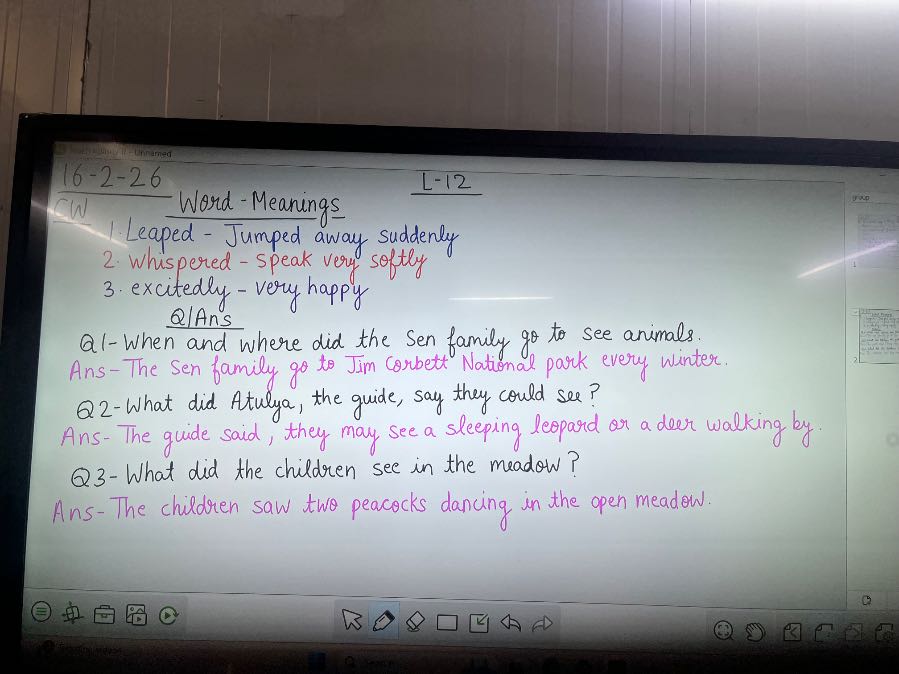 16-2-26
L-12
CW
Word-Meanings
1. Leaped - Jumped away suddenly
2. whispered - speak very softly
3. excitedly - very happy
Q/Ans
Q1- When and where did the Sen family go to see animals.
Ans- The Sen family go to Jim Corbett National park every winter.
Q2- What did Atulya, the guide, say they could see?
Ans- The guide said, they may see a sleeping leopard or a deer walking by.
Q3- What did the children see in the meadow?
Ans- The children saw two peacocks dancing in the open meadow.
group
1
2